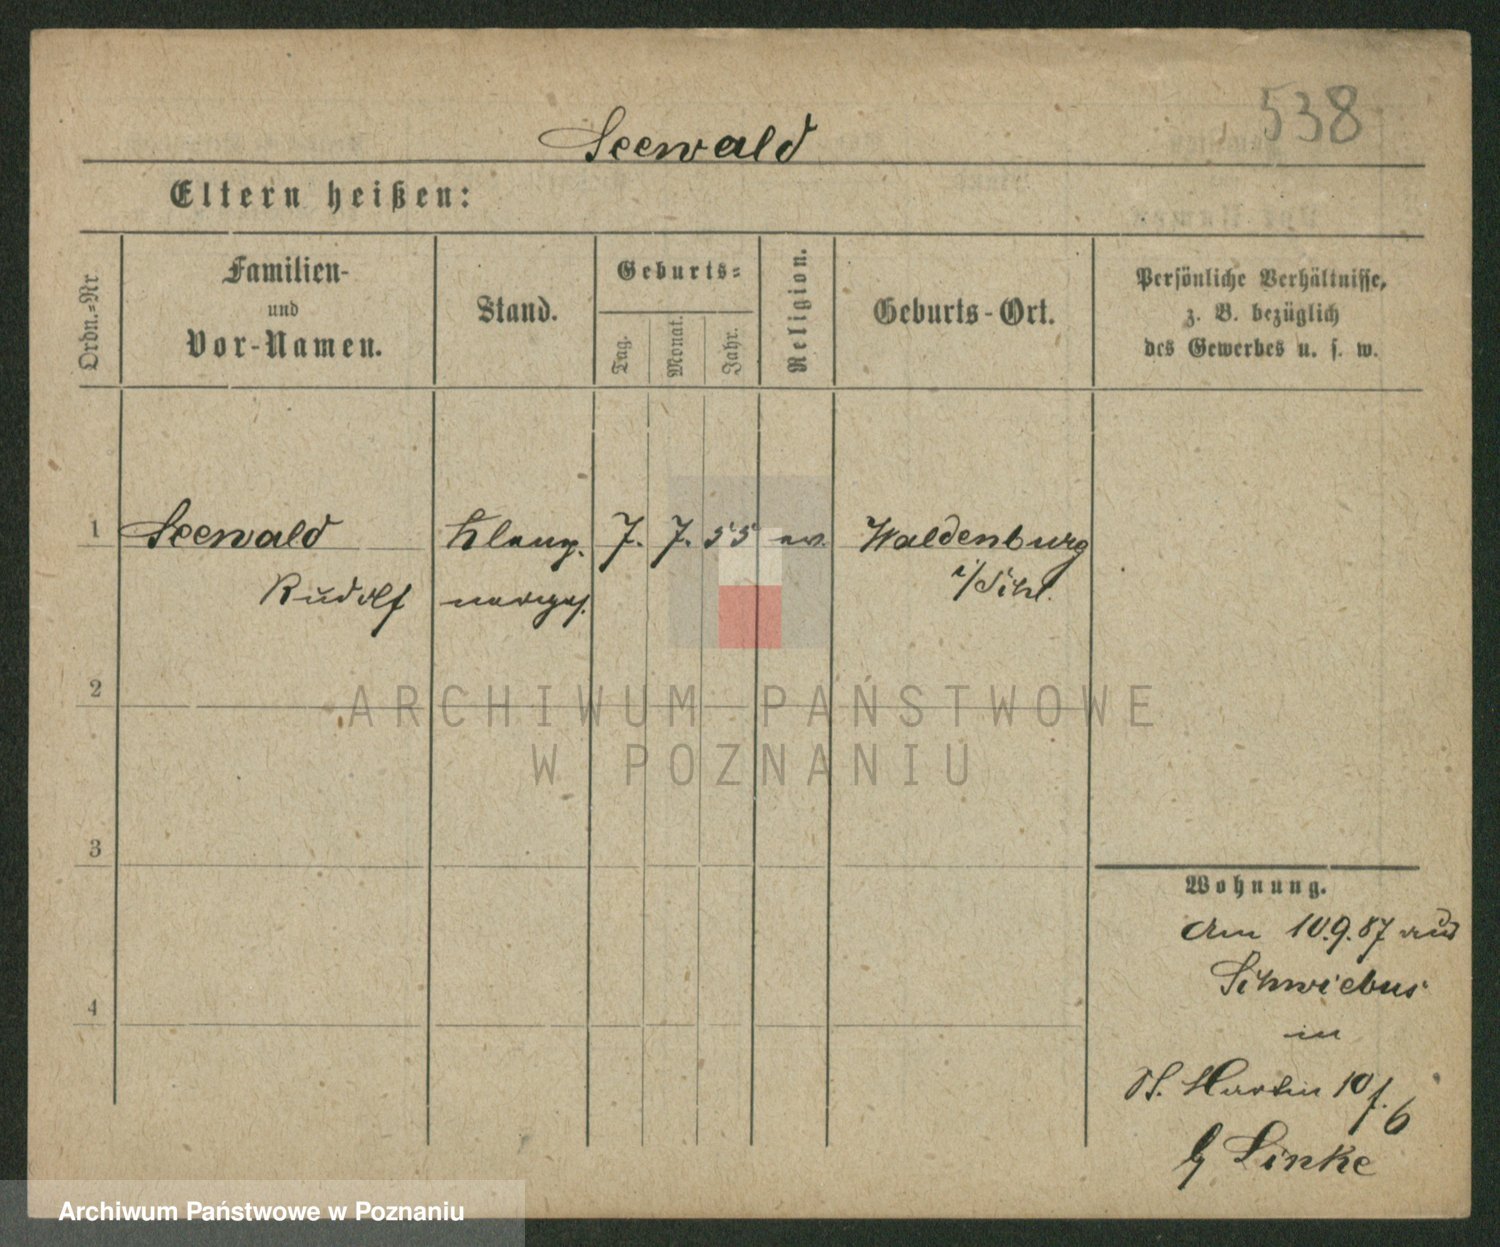 538
Seewald
Eltern heißen:
Ordn.=Nr.
Familien-
und
Vor-Namen.
Stand.
Geburts=
Tag.
Monat.
Jahr.
Religion.
Geburts-Ort.
Persönliche Verhältnisse,
z. B. bezüglich
des Gewerbes u. s. w.
1
Seewald
Rudolf
Klemp.
7. 7. 55
ev.
Waldenburg
i/Schl.
2
ARCHIWUM PAŃSTWOWE
W POZNANIU
3
4
Wohnung.
Am 10.9.87 aus
Schwiebus
in
St. Martin 10/f. 6
b/ Linke
Archiwum Państwowe w Poznaniu